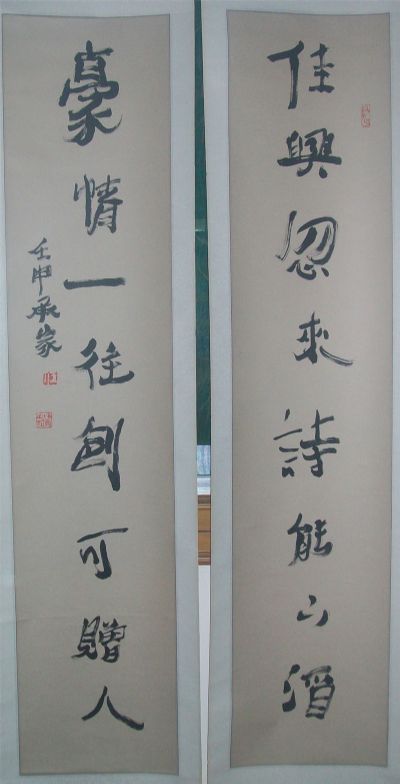 佳興忽來詩能下酒
豪情一往劍可贈人
壬申承家